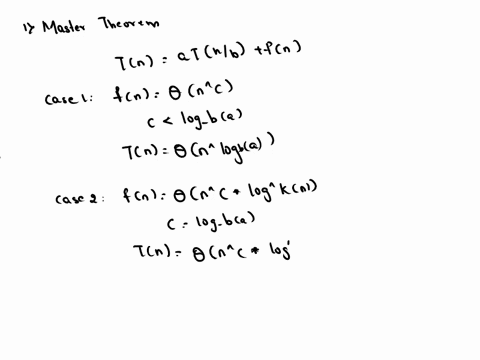 1) Master Theorem
T(n) = aT(n/b) + f(n)
Case 1: f(n) = Θ(n^c)
c < log_b(a)
T(n) = Θ(n^logb(a))
Case 2: f(n) = Θ(n^c * log^k(n))
c = log_b(a)
T(n) = Θ(n^c * log'